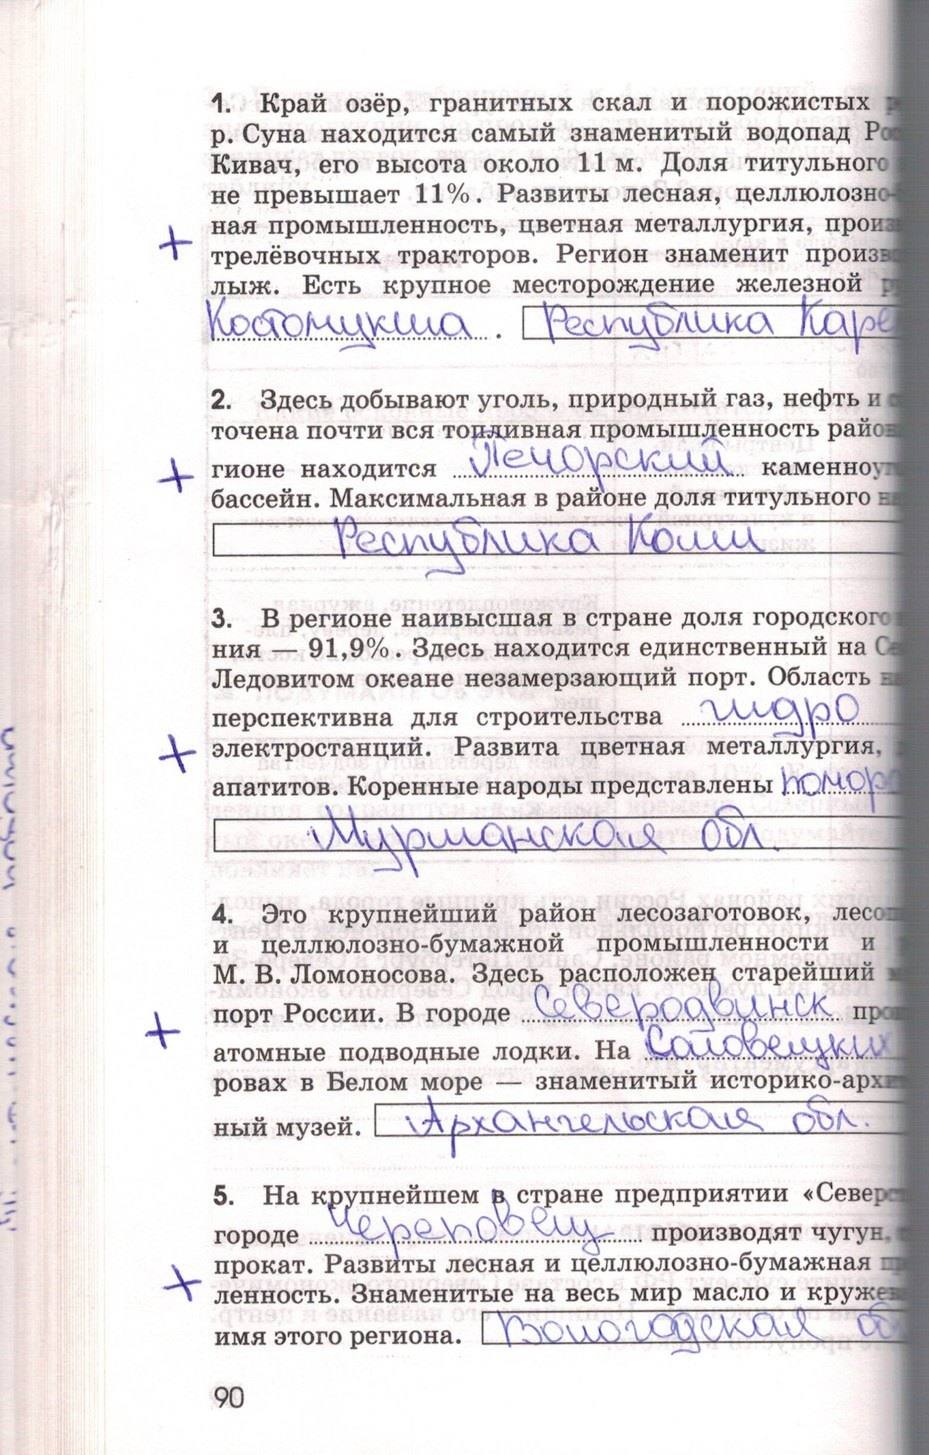 1. Край озёр, гранитных скал и порожистых
р. Суна находится самый знаменитый водопад Ро
Кивач, его высота около 11 м. Доля титульного
не превышает 11%. Развиты лесная, целлюлозно-
ная промышленность, цветная металлургия, произ
трелёвочных тракторов. Регион знаменит произв
лыж. Есть крупное месторождение железной
Костомукша . Республика Каре
2. Здесь добывают уголь, природный газ, нефть и
точена почти вся топливная промышленность райо
гионе находится Печорский каменноу
бассейн. Максимальная в районе доля титульного
Республика Коми
3. В регионе наивысшая в стране доля городског
ния — 91,9%. Здесь находится единственный на
Ледовитом океане незамерзающий порт. Область
перспективна для строительства гидро
электростанций. Развита цветная металлургия,
апатитов. Коренные народы представлены помор
Мурманская обл.
4. Это крупнейший район лесозаготовок, лесо
и целлюлозно-бумажной промышленности и
М. В. Ломоносова. Здесь расположен старейший
порт России. В городе Северодвинск про
атомные подводные лодки. На Соловецких
ровах в Белом море — знаменитый историко-арх
ный музей. Архангельская обл.
5. На крупнейшем в стране предприятии «Север
городе Череповец производят чугун,
прокат. Развиты лесная и целлюлозно-бумажная
ленность. Знаменитые на весь мир масло и круже
имя этого региона. Вологодская об
90